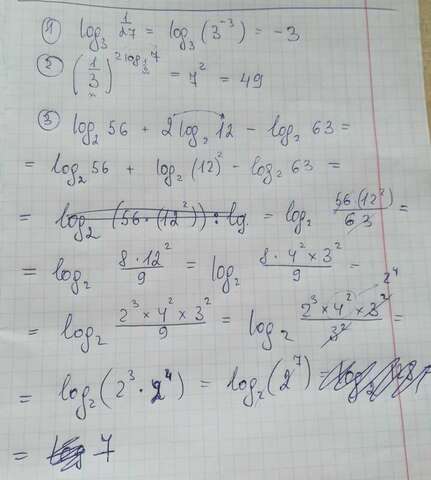 ① log₃ 1/27 = log₃(3⁻³) = -3
② (1/3)^(2 log_(1/3) 7) = 7² = 49
③ log₂ 56 + 2 log₂ 12 - log₂ 63 =
= log₂ 56 + log₂ (12)² - log₂ 63 =
= log₂ (56·(12²)) : lg = log₂ 56(12²)/63 =
= log₂ 8·12²/9 = log₂ 8·4²×3²/9 =
= log₂ 2³×4²×3²/9 = log₂ 2³×4²×3²/3² = 2⁴
= log₂(2³·2⁴) = log₂(2⁷) =
= 7